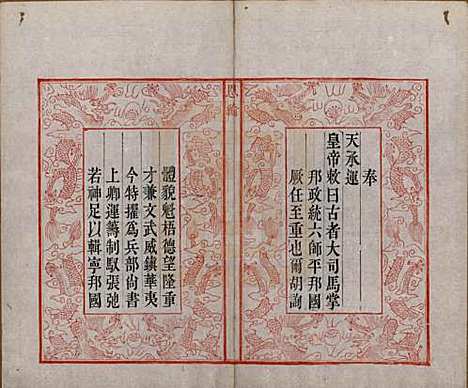 奉
天承運
皇帝敕曰古者大司馬掌
邦政統六師平邦國
厥任至重也爾胡詢
恩綸
體貌魁梧德望隆重
才兼文武威鎮華夷
今特擢爲兵部尙書
上卿運籌制馭張弛
若神足以輯寧邦國